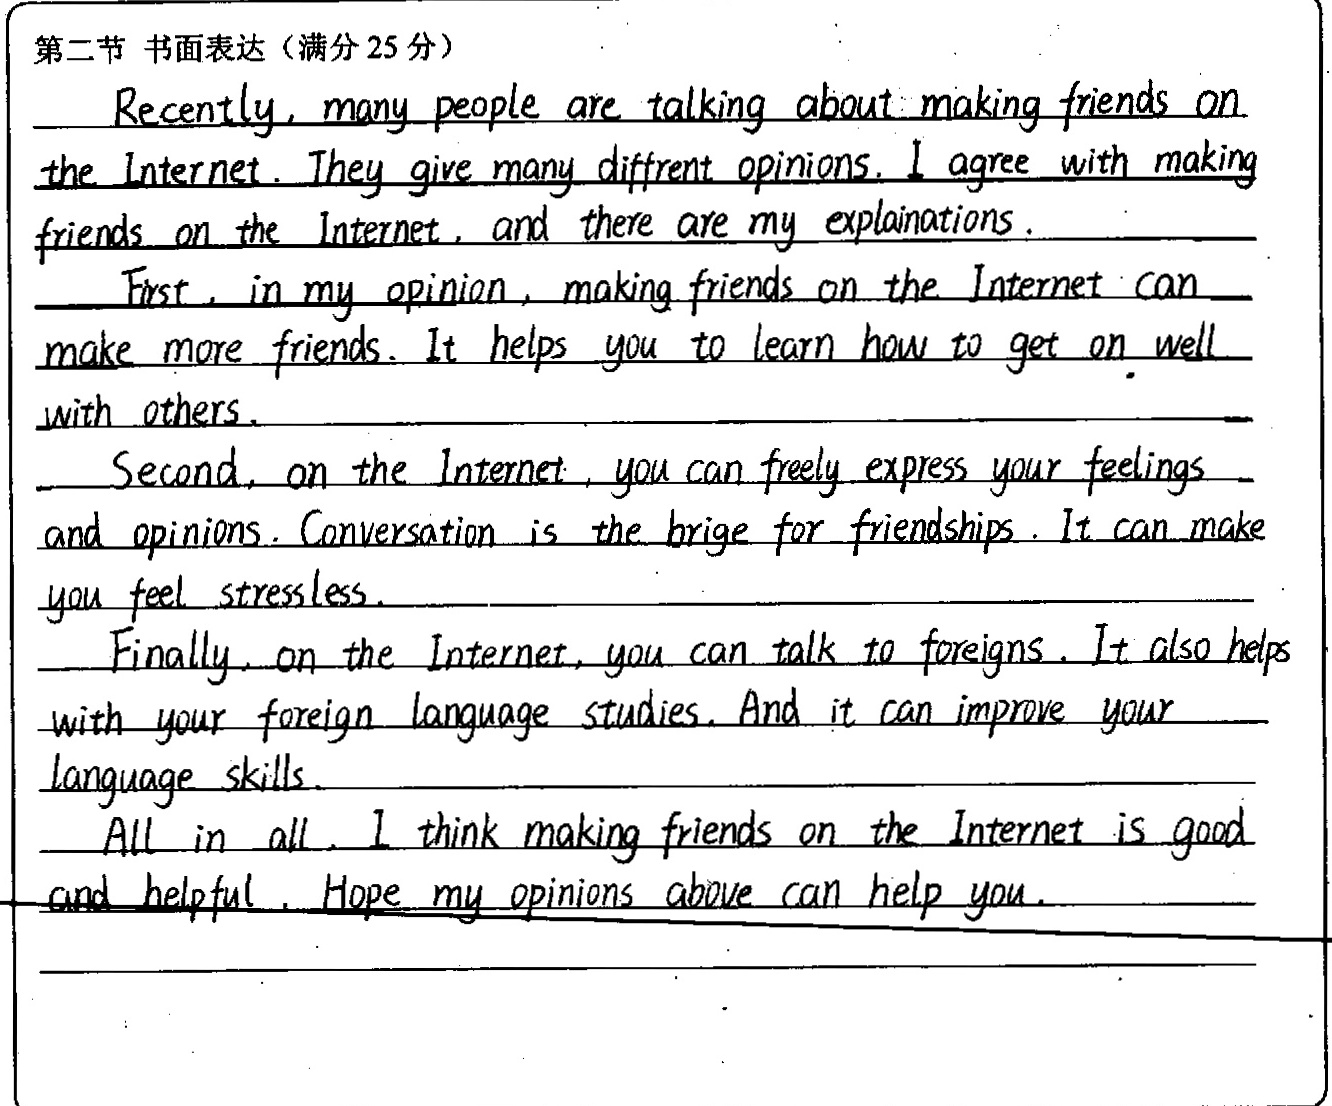 第二节 书面表达（满分 25 分）
Recently, many people are talking about making friends on
the Internet. They give many diffrent opinions. I agree with making
friends on the Internet, and there are my explainations.
First, in my opinion, making friends on the Internet can
make more friends. It helps you to learn how to get on well
with others.
Second, on the Internet, you can freely express your feelings
and opinions. Conversation is the brige for friendships. It can make
you feel stressless.
Finally, on the Internet, you can talk to foreigns. It also helps
with your foreign language studies. And it can improve your
language skills.
All in all, I think making friends on the Internet is good
and helpful. Hope my opinions above can help you.